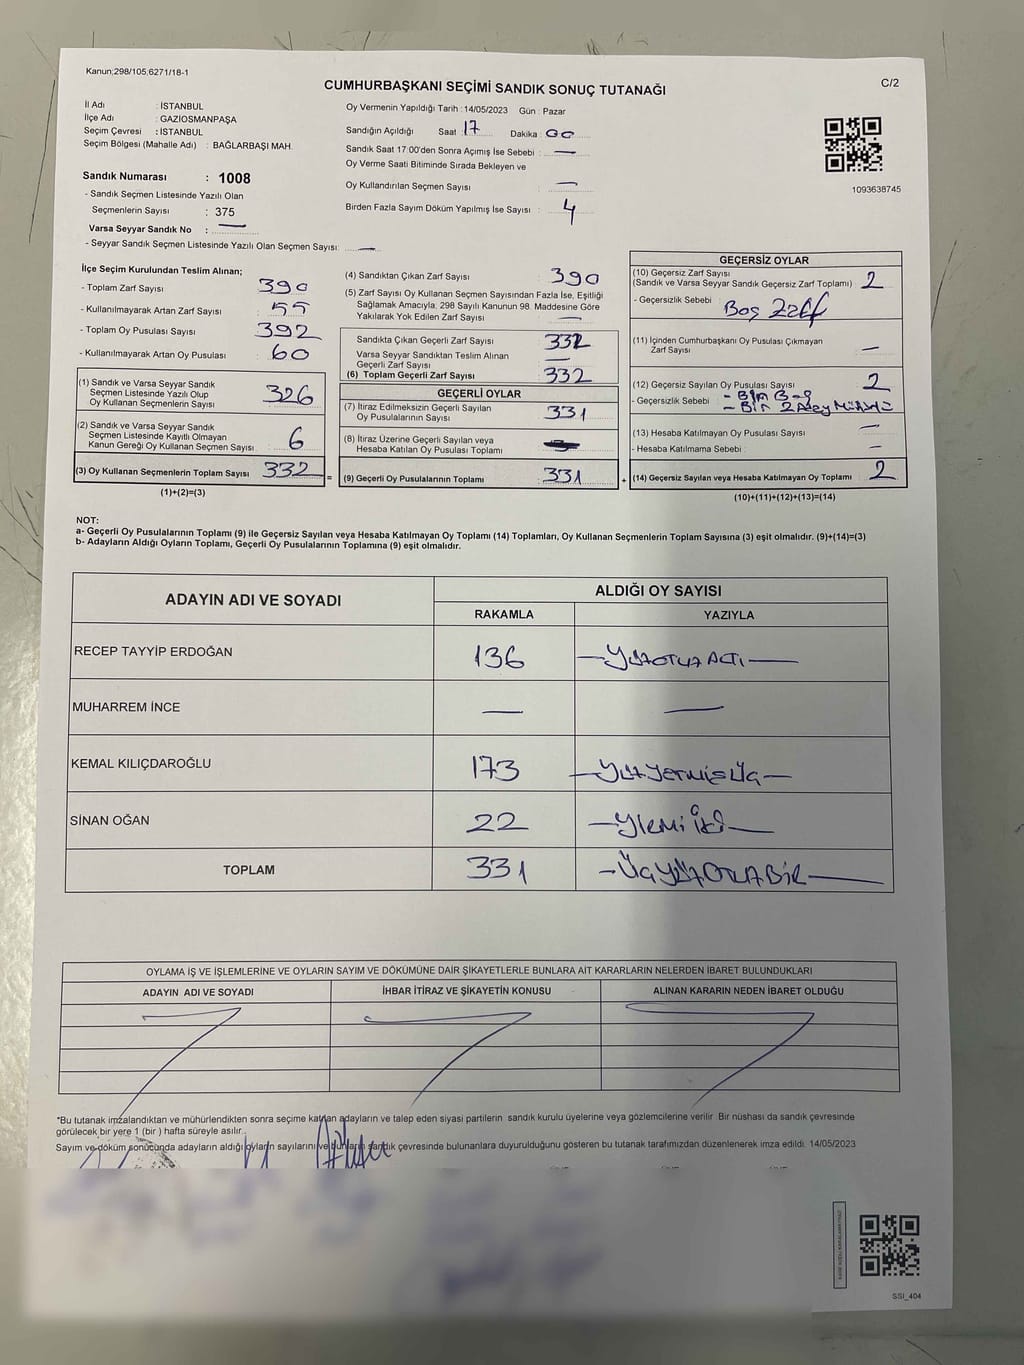 Kanun;298/105,6271/18-1
C/2
CUMHURBAŞKANI SEÇİMİ SANDIK SONUÇ TUTANAĞI
İl Adı : İSTANBUL
İlçe Adı : GAZİOSMANPAŞA
Seçim Çevresi : İSTANBUL
Seçim Bölgesi (Mahalle Adı) : BAĞLARBAŞI MAH.
Sandık Numarası : 1008
- Sandık Seçmen Listesinde Yazılı Olan
Seçmenlerin Sayısı : 375
Varsa Seyyar Sandık No : —
- Seyyar Sandık Seçmen Listesinde Yazılı Olan Seçmen Sayısı: —
Oy Vermenin Yapıldığı Tarih :14/05/2023 Gün : Pazar
Sandığın Açıldığı Saat 17 Dakika : 00
Sandık Saat 17:00'den Sonra Açımış İse Sebebi : —
Oy Verme Saati Bitiminde Sırada Bekleyen ve
Oy Kullandırılan Seçmen Sayısı : —
Birden Fazla Sayım Döküm Yapılmış İse Sayısı : 4
1093638745
İlçe Seçim Kurulundan Teslim Alınan;
- Toplam Zarf Sayısı : 390
- Kullanılmayarak Artan Zarf Sayısı : 55
- Toplam Oy Pusulası Sayısı : 392
- Kullanılmayarak Artan Oy Pusulası : 60
(1) Sandık ve Varsa Seyyar Sandık
Seçmen Listesinde Yazılı Olup
Oy Kullanan Seçmenlerin Sayısı : 326
(2) Sandık ve Varsa Seyyar Sandık
Seçmen Listesinde Kayıtlı Olmayan
Kanun Gereği Oy Kullanan Seçmen Sayısı : 6
(3) Oy Kullanan Seçmenlerin Toplam Sayısı : 332 =
(1)+(2)=(3)
(4) Sandıktan Çıkan Zarf Sayısı : 390
(5) Zarf Sayısı Oy Kullanan Seçmen Sayısından Fazla İse, Eşitliği
Sağlamak Amacıyla; 298 Sayılı Kanunun 98. Maddesine Göre
Yakılarak Yok Edilen Zarf Sayısı : —
Sandıkta Çıkan Geçerli Zarf Sayısı : 332
Varsa Seyyar Sandıktan Teslim Alınan
Geçerli Zarf Sayısı : —
(6) Toplam Geçerli Zarf Sayısı : 332
GEÇERLİ OYLAR
(7) İtiraz Edilmeksizin Geçerli Sayılan
Oy Pusulalarının Sayısı : 331
(8) İtiraz Üzerine Geçerli Sayılan veya
Hesaba Katılan Oy Pusulası Toplamı :
(9) Geçerli Oy Pusulalarının Toplamı : 331 +
GEÇERSİZ OYLAR
(10) Geçersiz Zarf Sayısı
(Sandık ve Varsa Seyyar Sandık Geçersiz Zarf Toplamı) : 2
- Geçersizlik Sebebi : Boş Zarf
(11) İçinden Cumhurbaşkanı Oy Pusulası Çıkmayan
Zarf Sayısı : —
(12) Geçersiz Sayılan Oy Pusulası Sayısı : 2
- Geçersizlik Sebebi :
(13) Hesaba Katılmayan Oy Pusulası Sayısı : —
- Hesaba Katılmama Sebebi : —
(14) Geçersiz Sayılan veya Hesaba Katılmayan Oy Toplamı : 2
(10)+(11)+(12)+(13)=(14)
NOT:
a- Geçerli Oy Pusulalarının Toplamı (9) ile Geçersiz Sayılan veya Hesaba Katılmayan Oy Toplamı (14) Toplamları, Oy Kullanan Seçmenlerin Toplam Sayısına (3) eşit olmalıdır. (9)+(14)=(3)
b- Adayların Aldığı Oyların Toplamı, Geçerli Oy Pusulalarının Toplamına (9) eşit olmalıdır.
ADAYIN ADI VE SOYADI
ALDIĞI OY SAYISI
RAKAMLA YAZIYLA
RECEP TAYYİP ERDOĞAN 136 — YÜZOTUZ ALTI —
MUHARREM İNCE — —
KEMAL KILIÇDAROĞLU 173 — Yüz Yetmiş Üç —
SİNAN OĞAN 22 — Yirmi iki —
TOPLAM 331 — ÜÇ YÜZ OTUZ BİR —
OYLAMA İŞ VE İŞLEMLERİNE VE OYLARIN SAYIM VE DÖKÜMÜNE DAİR ŞİKAYETLERLE BUNLARA AİT KARARLARIN NELERDEN İBARET BULUNDUKLARI
ADAYIN ADI VE SOYADI İHBAR İTİRAZ VE ŞİKAYETİN KONUSU ALINAN KARARIN NEDEN İBARET OLDUĞU
*Bu tutanak imzalandıktan ve mühürlendikten sonra seçime katılan adayların ve talep eden siyasi partilerin sandık kurulu üyelerine veya gözlemcilerine verilir. Bir nüshası da sandık çevresinde
görülecek bir yere 1 (bir ) hafta süreyle asılır.
Sayım ve döküm sonucunda adayların aldığı oyların sayılarını ve bunların sandık çevresinde bulunanlara duyurulduğunu gösteren bu tutanak tarafımızdan düzenlenerek imza edildi. 14/05/2023
SSI_404